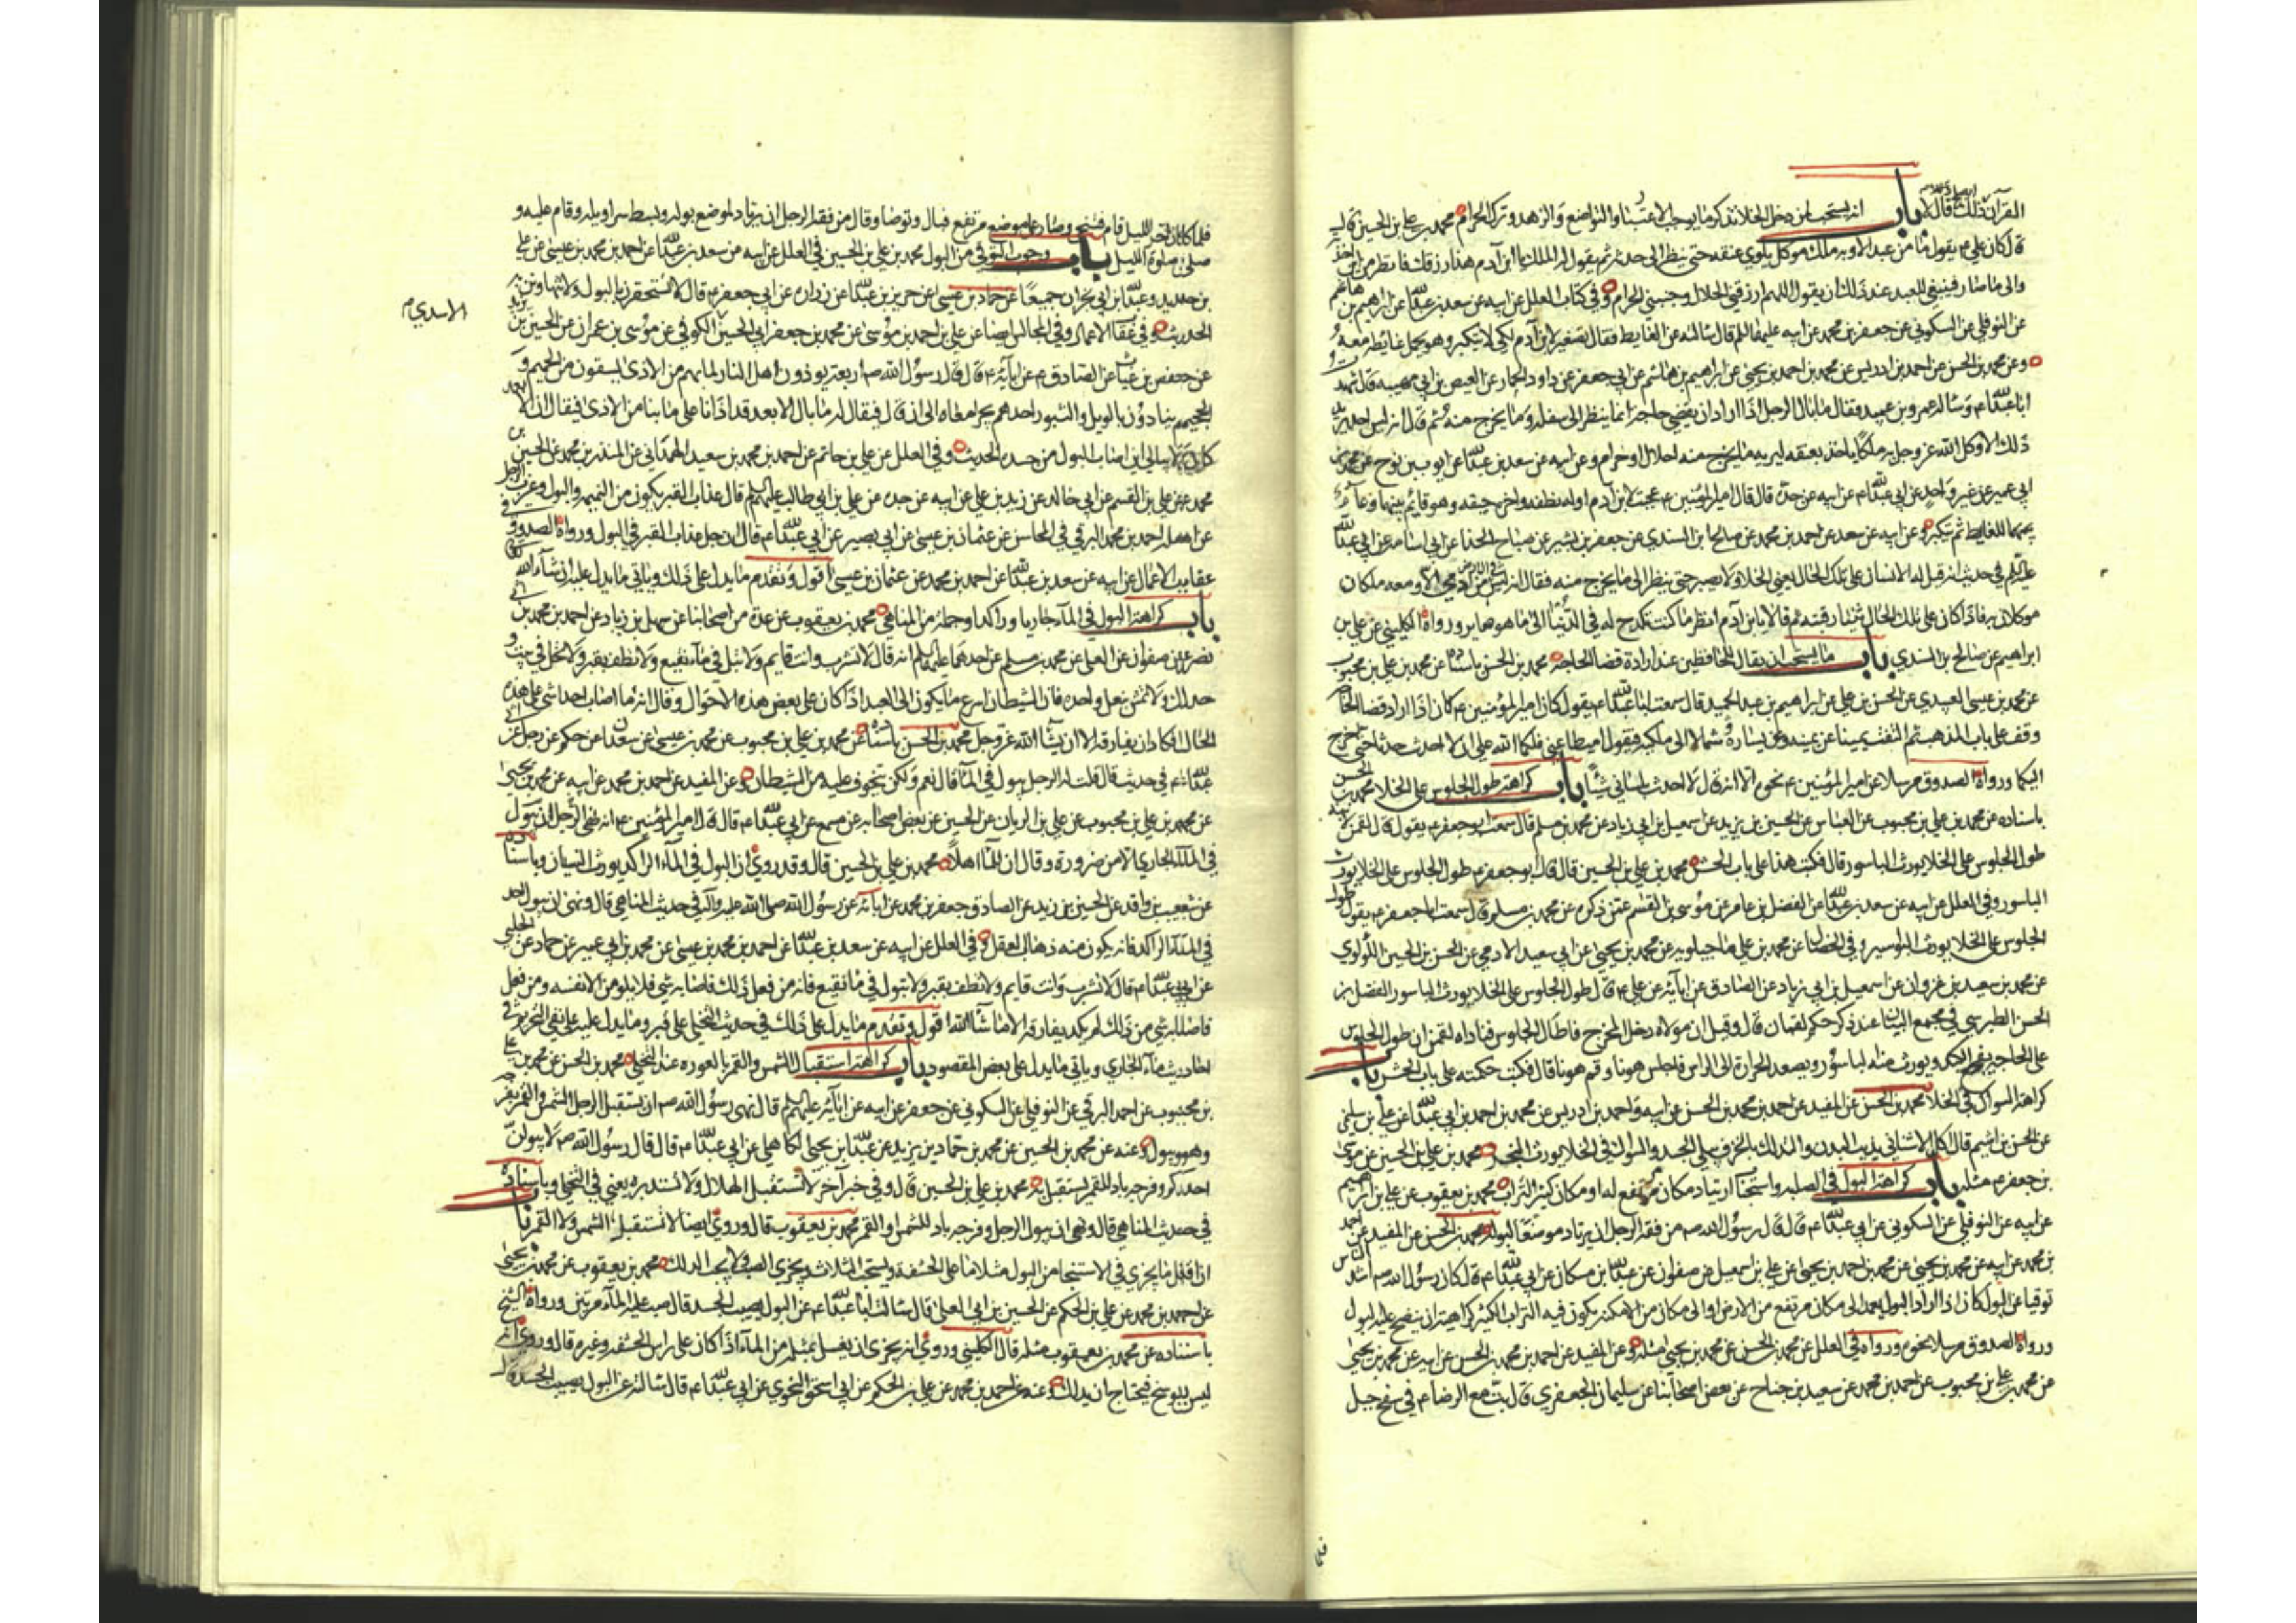 القرآن ذلك قال باب انه يستحب لمن دخل الخلاء تذكر ما يوجب الاعتبار والتواضع والزهد وترك الحرام محمد بن علي بن الحسين قال
كان علي ع يقول ما من عبد الا وبه ملك موكل يلوي عنقه حتى ينظر الى حدثه ثم يقول له الملك يا ابن آدم هذا رزقك فانظر من اين اخذته
والى ما صار فينبغي للعبد عند ذلك ان يقول اللهم ارزقني الحلال وجنبني الحرام وفي كتاب العلل عن ابيه عن سعد بن عبد الله عن ابراهيم بن هاشم
عن النوفلي عن السكوني عن جعفر بن محمد عن ابيه عليهما السلم قال سالته عن الغايط فقال تصغير لابن آدم لكي لا يتكبر وهو يحمل غايطه معه
وعن محمد بن الحسن عن احمد بن ادريس عن محمد بن احمد بن يحيى عن ابراهيم بن هاشم عن ابي جعفر عن داود الجمار عن العيص بن ابي مهيبه قال شهدت
ابا عبد الله ع وساله عمرو بن عبيد فقال ما بال الرجل اذا اراد ان يقضي حاجة انما ينظر الى سفله وما يخرج منه ثم قال انه ليس احد يريد
ذلك الا وكل الله عز وجل به ملكا ياخذ بعنقه ليريه ما يخرج منه احلال او حرام وعن ابيه عن سعد بن عبد الله عن ايوب بن نوح عن محمد بن
ابي عمير عن غير واحد عن ابي عبد الله ع عن ابيه عن جده قال قال امير المؤمنين ع عجبت لابن آدم اوله نطفه واخره جيفه وهو قائم بينهما وعاء
للغايط ثم يتكبر وعن ابيه عن سعد عن احمد بن محمد عن صالح بن السندي عن جعفر بن بشير عن صباح الحذا عن ابي اسامه عن ابي عبد الله
عليه السلم في حديث انه قيل له الانسان على تلك الحال يعني الخلاء ولا يصبر حتى ينظر الى ما يخرج منه فقال انه ليس في الارض آدمي الا ومعه ملكان
موكلان به فاذا كان على تلك الحال ثنيا رقبته ثم قالا يا ابن آدم انظر ما كنت تكدح له في الدنيا الى ما هو صاير ورواه الكليني عن علي بن
ابراهيم عن صالح بن السندي باب ما يستحب ان يقال للحافظين عند ارادة قضا الحاجة محمد بن الحسن باسناده عن محمد بن علي بن محبوب
عن محمد بن عيسى العبيدي عن الحسن بن علي عن ابراهيم بن عبد الحميد قال سمعت ابا عبد الله ع يقول كان امير المؤمنين ع كان اذا اراد قضا الحاجه
وقف على باب المذهب ثم التفت يمينا عن يمينه وعن يساره وشمالا الى ملكيه فيقول اميطا عني فلكما الله علي ان لا احدث حدثا حتى اخرج
اليكما ورواه الصدوق مرسلا عن امير المؤمنين ع نحوه الا انه قال لا احدث بلساني شيئا باب كراهة طول الجلوس على الخلا محمد بن الحسن
باسناده عن محمد بن علي بن محبوب عن العباس عن الحسين بن يزيد عن اسمعيل بن ابي زياد عن محمد بن مسلم قال سمعت ابا جعفر ع يقول قال لقمن لابنه
طول الجلوس على الخلا يورث الباسور قال فكتب هذا على باب الحش محمد بن علي بن الحسين قال قال ابو جعفر ع طول الجلوس على الخلا يورث
الباسور وفي العلل عن ابيه عن سعد بن عبد الله عن الفضل بن عامر عن موسى بن القسم عمن ذكره عن محمد بن مسلم قال سمعت ابا جعفر ع يقول طول
الجلوس على الخلا يورث البواسير وفي الخصال عن محمد بن علي ماجيلويه عن محمد بن يحيى عن ابي سعيد الادمي عن الحسن بن الحسين اللؤلوي
عن محمد بن سعيد بن غزوان عن اسمعيل بن ابي زياد عن الصادق عن ابائه عن علي ع قال طول الجلوس على الخلا يورث الباسور الفضل بن
الحسن الطبرسي في مجمع البيان عند ذكر حكم لقمان قال وقيل ان مولاه دخل المخرج فاطال الجلوس فناداه لقمن ان طول الجلوس
على الحاجه يفجع الكبد ويورث منه الباسور ويصعد الحرارة الى الراس فاجلس هونا وقم هونا قال فكتب حكمته على باب الحش باب
كراهة السواك في الخلا محمد بن الحسن عن المفيد عن احمد بن محمد بن الحسن عن ابيه واحمد بن ادريس عن محمد بن احمد بن ابي عبد الله عن علي بن سليمن
عن الحسن بن اشيم قال اكل الاشنان يذيب البدن والتدلك بالخزف يبلي الجسد والسواك في الخلا يورث البخر محمد بن علي بن الحسين عن موسى
بن جعفر ع مثله باب كراهة البول في الصلبه واستحباب ارتياد مكان مرتفع له او مكان كثير التراب محمد بن يعقوب عن علي بن ابراهيم
عن ابيه عن النوفلي عن السكوني عن ابي عبد الله ع قال قال رسول الله ص من فقه الرجل ان يرتاد موضعا لبوله محمد بن الحسن عن المفيد عن احمد
بن محمد عن ابيه عن محمد بن يحيى عن محمد بن احمد بن يحيى عن علي بن اسمعيل عن صفوان عن عبد الله بن مسكان عن ابي عبد الله ع قال كان رسول الله ص اشد الناس
توقيا عن البول كان اذا اراد البول يعمد الى مكان مرتفع من الارض او الى مكان من الامكنه يكون فيه التراب الكثير كراهية ان ينضح عليه البول
ورواه الصدوق مرسلا نحوه ورواه في العلل عن محمد بن الحسن عن محمد بن يحيى مثله وعن المفيد عن احمد بن محمد بن الحسن عن ابيه عن محمد بن يحيى
عن محمد بن علي بن محبوب عن احمد بن محمد عن سعيد بن جناح عن بعض اصحابنا عن سليمان الجعفري قال بت مع الرضا ع في سفح جبل
فلما
فلما كان اخر الليل قام فتنحى وصار على موضع مرتفع فبال وتوضا وقال من فقه الرجل ان يرتاد لموضع بوله وبسط سراويله وقام عليه و
صلى صلوة الليل باب وجوب التوقي من البول محمد بن علي بن الحسين في العلل عن ابيه عن سعد بن عبد الله عن احمد بن محمد بن عيسى عن علي
بن حديد وعبد الرحمن بن ابي نجران جميعا عن حماد بن عيسى عن حريز بن عبد الله عن زراره عن ابي جعفر ع قال لا تستحقرن بالبول ولا تتهاونن به
الحديث وفي عقاب الاعمال وفي المجالس ايضا عن علي بن احمد بن موسى عن محمد بن جعفر ابي الحسين الكوفي عن موسى بن عمران عن الحسين بن يزيد
الاسدي م
عن حفص بن غياث عن الصادق ع عن ابائه ع قال قال رسول الله ص اربعة يوذون اهل النار على ما بهم من الاذى يسقون من الحميم و
الجحيم ينادون بالويل والثبور احدهم يجر امعاه الى ان قال فيقال له ما بال الابعد قد اذانا على ما بنا من الاذى فيقال ان الابعد
كان لا يبالي اين اصاب البول من جسده الحديث وفي العلل عن علي بن حاتم عن احمد بن محمد بن سعيد الهمداني عن المنذر بن محمد عن الحسين بن
محمد عن علي بن القسم عن ابي خالد عن زيد بن علي عن ابيه عن جده عن علي بن ابي طالب عليهم السلم قال عذاب القبر يكون من النميمه والبول وعزب الرجل
عن اهله احمد بن محمد البرقي في المحاسن عن عثمان بن عيسى عن ابي بصير عن ابي عبد الله ع قال ان جل عذاب القبر في البول ورواه الصدوق في
عقاب الاعمال عن ابيه عن سعد بن عبد الله عن احمد بن محمد عن عثمان بن عيسى اقول وتقدم ما يدل على ذلك وياتي ما يدل عليه ان شاء الله
باب كراهة البول في الماء جاريا وراكدا وجملة من المناهي محمد بن يعقوب عن عدة من اصحابنا عن سهل بن زياد عن احمد بن محمد بن
نصر عن صفوان عن العلا عن محمد بن مسلم عن احدهما عليهما السلم انه قال لا تشرب وانت قايم ولا تبل في ماء نقيع ولا تطف بقبر ولا تخل في بيت
وحدك ولا تمش بنعل واحده فان الشيطان اسرع ما يكون الى العبد اذا كان على بعض هذه الاحوال وقال انه ما اصاب احدا شي على هذه
الحال فكاد ان يفارقه الا ان يشا الله عز وجل محمد بن الحسن باسناده عن محمد بن علي بن محبوب عن محمد بن عيسى عن سعدان عن حكم عن رجل عن ابي
عبد الله ع في حديث قال قلت له الرجل يبول في الماء قال نعم ولكن تخوف عليه من الشيطان وعن المفيد عن احمد بن محمد عن ابيه عن محمد بن يحيى
عن محمد بن علي بن محبوب عن علي بن الريان عن الحسين عن بعض اصحابه عن مسمع عن ابي عبد الله ع قال قال امير المؤمنين ع انه نهى الرجل ان يبول
في الماء الجاري الا من ضرورة وقال ان للماء اهلا محمد بن علي بن الحسين قال وقد روي ان البول في الماء الراكد يورث النسيان وباسناده
عن شعيب بن واقد عن الحسين بن زيد عن الصادق جعفر بن محمد عن ابائه عن رسول الله صلى الله عليه وآله في حديث المناهي قال ونهى ان يبول احد
في الماء الراكد فانه يكون منه ذهاب العقل وفي العلل عن ابيه عن سعد بن عبد الله عن احمد بن محمد بن عيسى عن محمد بن ابي عمير عن حماد عن الحلبي
عن ابي عبد الله ع قال لا تشرب وانت قايم ولا تطف بقبر ولا تبول في ماء نقيع فانه من فعل ذلك فاصابه شي فلا يلومن الا نفسه ومن فعل
فاصابه شي من ذلك لم يكد يفارقه الا ما شاء الله اقول وتقدم ما يدل على ذلك في حديث التخلي على قبر وما يدل عليه على نفي التحريم في
احاديث ماء الجاري وياتي ما يدل على بعض المقصود باب كراهة استقبال الشمس والقمر بالعوره عند التخلي محمد بن الحسن عن محمد بن علي
بن محبوب عن احمد البرقي عن النوفلي عن السكوني عن جعفر عن ابيه عن ابائه عليهم السلم قال نهى رسول الله ص ان يستقبل الرجل الشمس والقمر بفرجه
وهو يبول وعنه عن محمد بن الحسين عن محمد بن حماد بن يزيد عن عبد الله بن يحيى الكاهلي عن ابي عبد الله ع قال قال رسول الله ص لا يبولن
احدكم وفرجه باد للقمر يستقبل به محمد بن علي بن الحسين قال وفي خبر آخر لا تستقبل الهلال ولا تستدبره يعني في التخلي وباسناده
في حديث المناهي قال ونهى ان يبول الرجل وفرجه باد للشمس او القمر محمد بن يعقوب قال وروي ايضا لا تستقبل الشمس ولا القمر باب
ان اقل ما يجزي في الاستنجا من البول مثلا ما على الحشفه ويستحب الثلاث ويجزي الصب ولا يجب الدلك محمد بن يعقوب عن محمد بن يحيى
عن احمد بن محمد عن علي بن الحكم عن الحسين بن ابي العلا قال سالت ابا عبد الله ع عن البول يصيب الجسد قال صب عليه الماء مرتين ورواه الشيخ
باسناده عن محمد بن يعقوب مثله قال الكليني وروي انه يجزي ان يغسل بمثله من الماء اذا كان على راس الحشفه وغيره قال وروي انه
ليس بوسخ فيحتاج ان يدلك وعنه عن احمد بن محمد عن علي بن الحكم عن ابي اسحق النحوي عن ابي عبد الله ع قال سالته عن البول يصيب الجسد قال